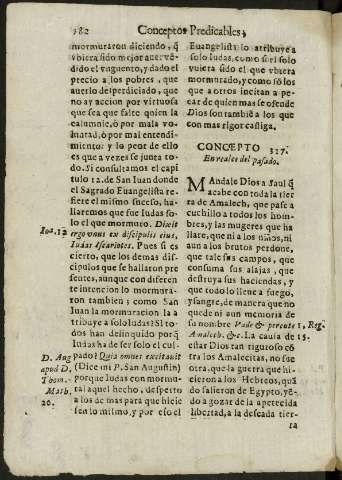 182
Conceptos Predicables,
murmuraron diciendo, q̃
vbiera sido mejor auer vẽ-
dido el vnguento, y dado el
precio a los pobres, que
auerlo desperdiciado, que
no ay accion por virtuosa
que sea que falte quien la
calumnie, ò por mala vo-
luntad, ò por mal entendi-
miento: y lo peor de ello
es que a vezes se junta to-
do. Si consultamos el capi
tulo 12. de San Iuan donde
el Sagrado Euangelista re-
fiere el mismo suceso, ha-
llaremos que fue Iudas so-
lo el que mormuro. Dixit
ergo vnus ex discipulis eius,
Iudas Iscariotes. Pues si es
cierto, que los demas dis-
cipulos que se hallaron pre
sentes, aunque con diferen
te intencion lo mormura-
ron tambien; como San
Iuan la mormuracion la a
tribuye a solo Iudas? Si to-
dos han delinquido porq̃
Iudas ha de ser solo el cul-
pado? Quia omnes excitauit
(Dice mi P. San Augustin)
porque Iudas con mormu-
rar aquel hecho, desperto
a los de mas para que hicie
sen lo mismo, y por eso el
Ioa. 12
D. Aug
apud D.
Thom.
Math.
26.
Euangelista lo atribuye a
solo Iudas, como si el solo
vuiera sido el que vbiera
mormurado, y como sō los
que a otros incitan a pe-
car de quien mas se ofende
Dios son tambiē a los que
con mas rigor castiga.
CONCEPTO 327.
En reales del pasado.
MAndale Dios a Saul q̃
acabe con toda la tie
rra de Amalech, que pase a
cuchillo a todos los hom-
bres, y las mugeres que ha
llare, que ni a los niños, ni
aun a los brutos perdone,
que tale sus campos, que
consuma sus alajas, que
destruya sus haciendas, y
que todo lo lleue a fuego,
y sangre, de manera que no
quede ni aun memoria de
su nombre Vade & percute
Amalech. &c. La causa de
estar Dios tan riguroso cō
tra los Amalecitas, no fue
otra, que la guerra que hi-
cieron a los Hebreos, quā
do salieron de Egypto, yē-
do a gozar de la apetecida
libertad, a la deseada tier-
1. Reg.
15.
ra